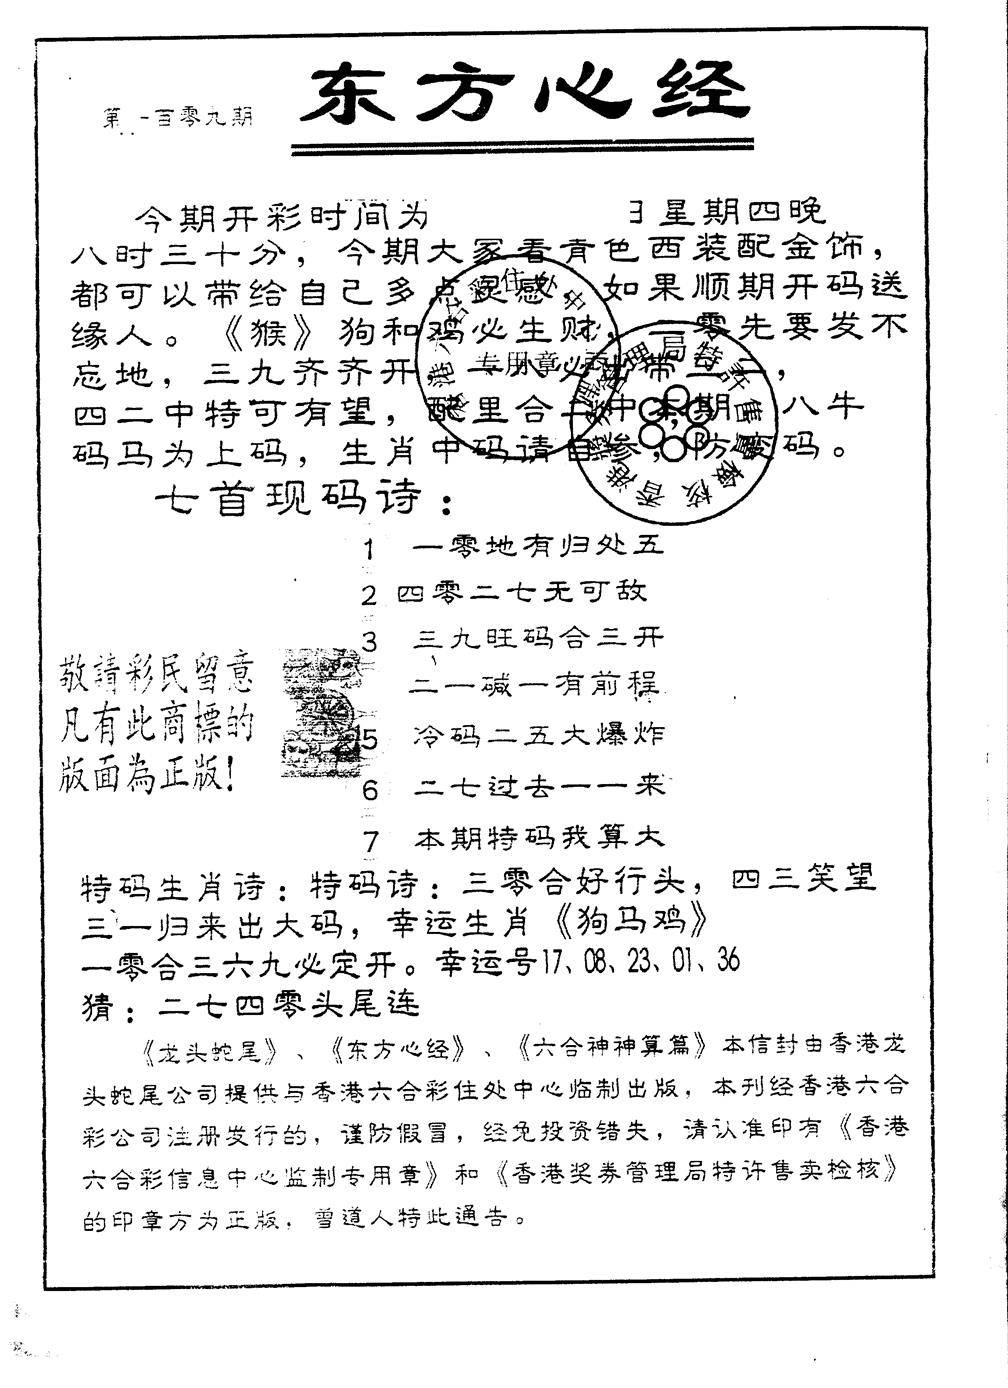 东方心经
第一百零九期
今期开彩时间为 星期四晚
八时三十分，今期大家看青色西装配金饰，
都可以带给自己多点灵感，如果顺期开码送
缘人。《猴》狗和鸡必生财，二零先要发不
忘地，三九齐齐开，
四二中特可有望，配里合 中本期 八牛
码马为上码，生肖中码请自参，防 码。
专用章
七首现码诗：
1 一零地有归处五
2 四零二七无可敌
3 三九旺码合三开
二一碱一有前程
5 冷码二五大爆炸
6 二七过去一一来
7 本期特码我算大
敬請彩民留意
凡有此商標的
版面為正版！
特码生肖诗：特码诗：三零合好行头，四三笑望
三一归来出大码，幸运生肖《狗马鸡》
一零合三六九必定开。幸运号17、08、23、01、36
猜：二七四零头尾连
《龙头蛇尾》、《东方心经》、《六合神神算篇》本信封由香港龙
头蛇尾公司提供与香港六合彩住处中心临制出版，本刊经香港六合
彩公司注册发行的，谨防假冒，经免投资错失，请认准印有《香港
六合彩信息中心监制专用章》和《香港奖券管理局特许售卖检核》
的印章方为正版，曾道人特此通告。